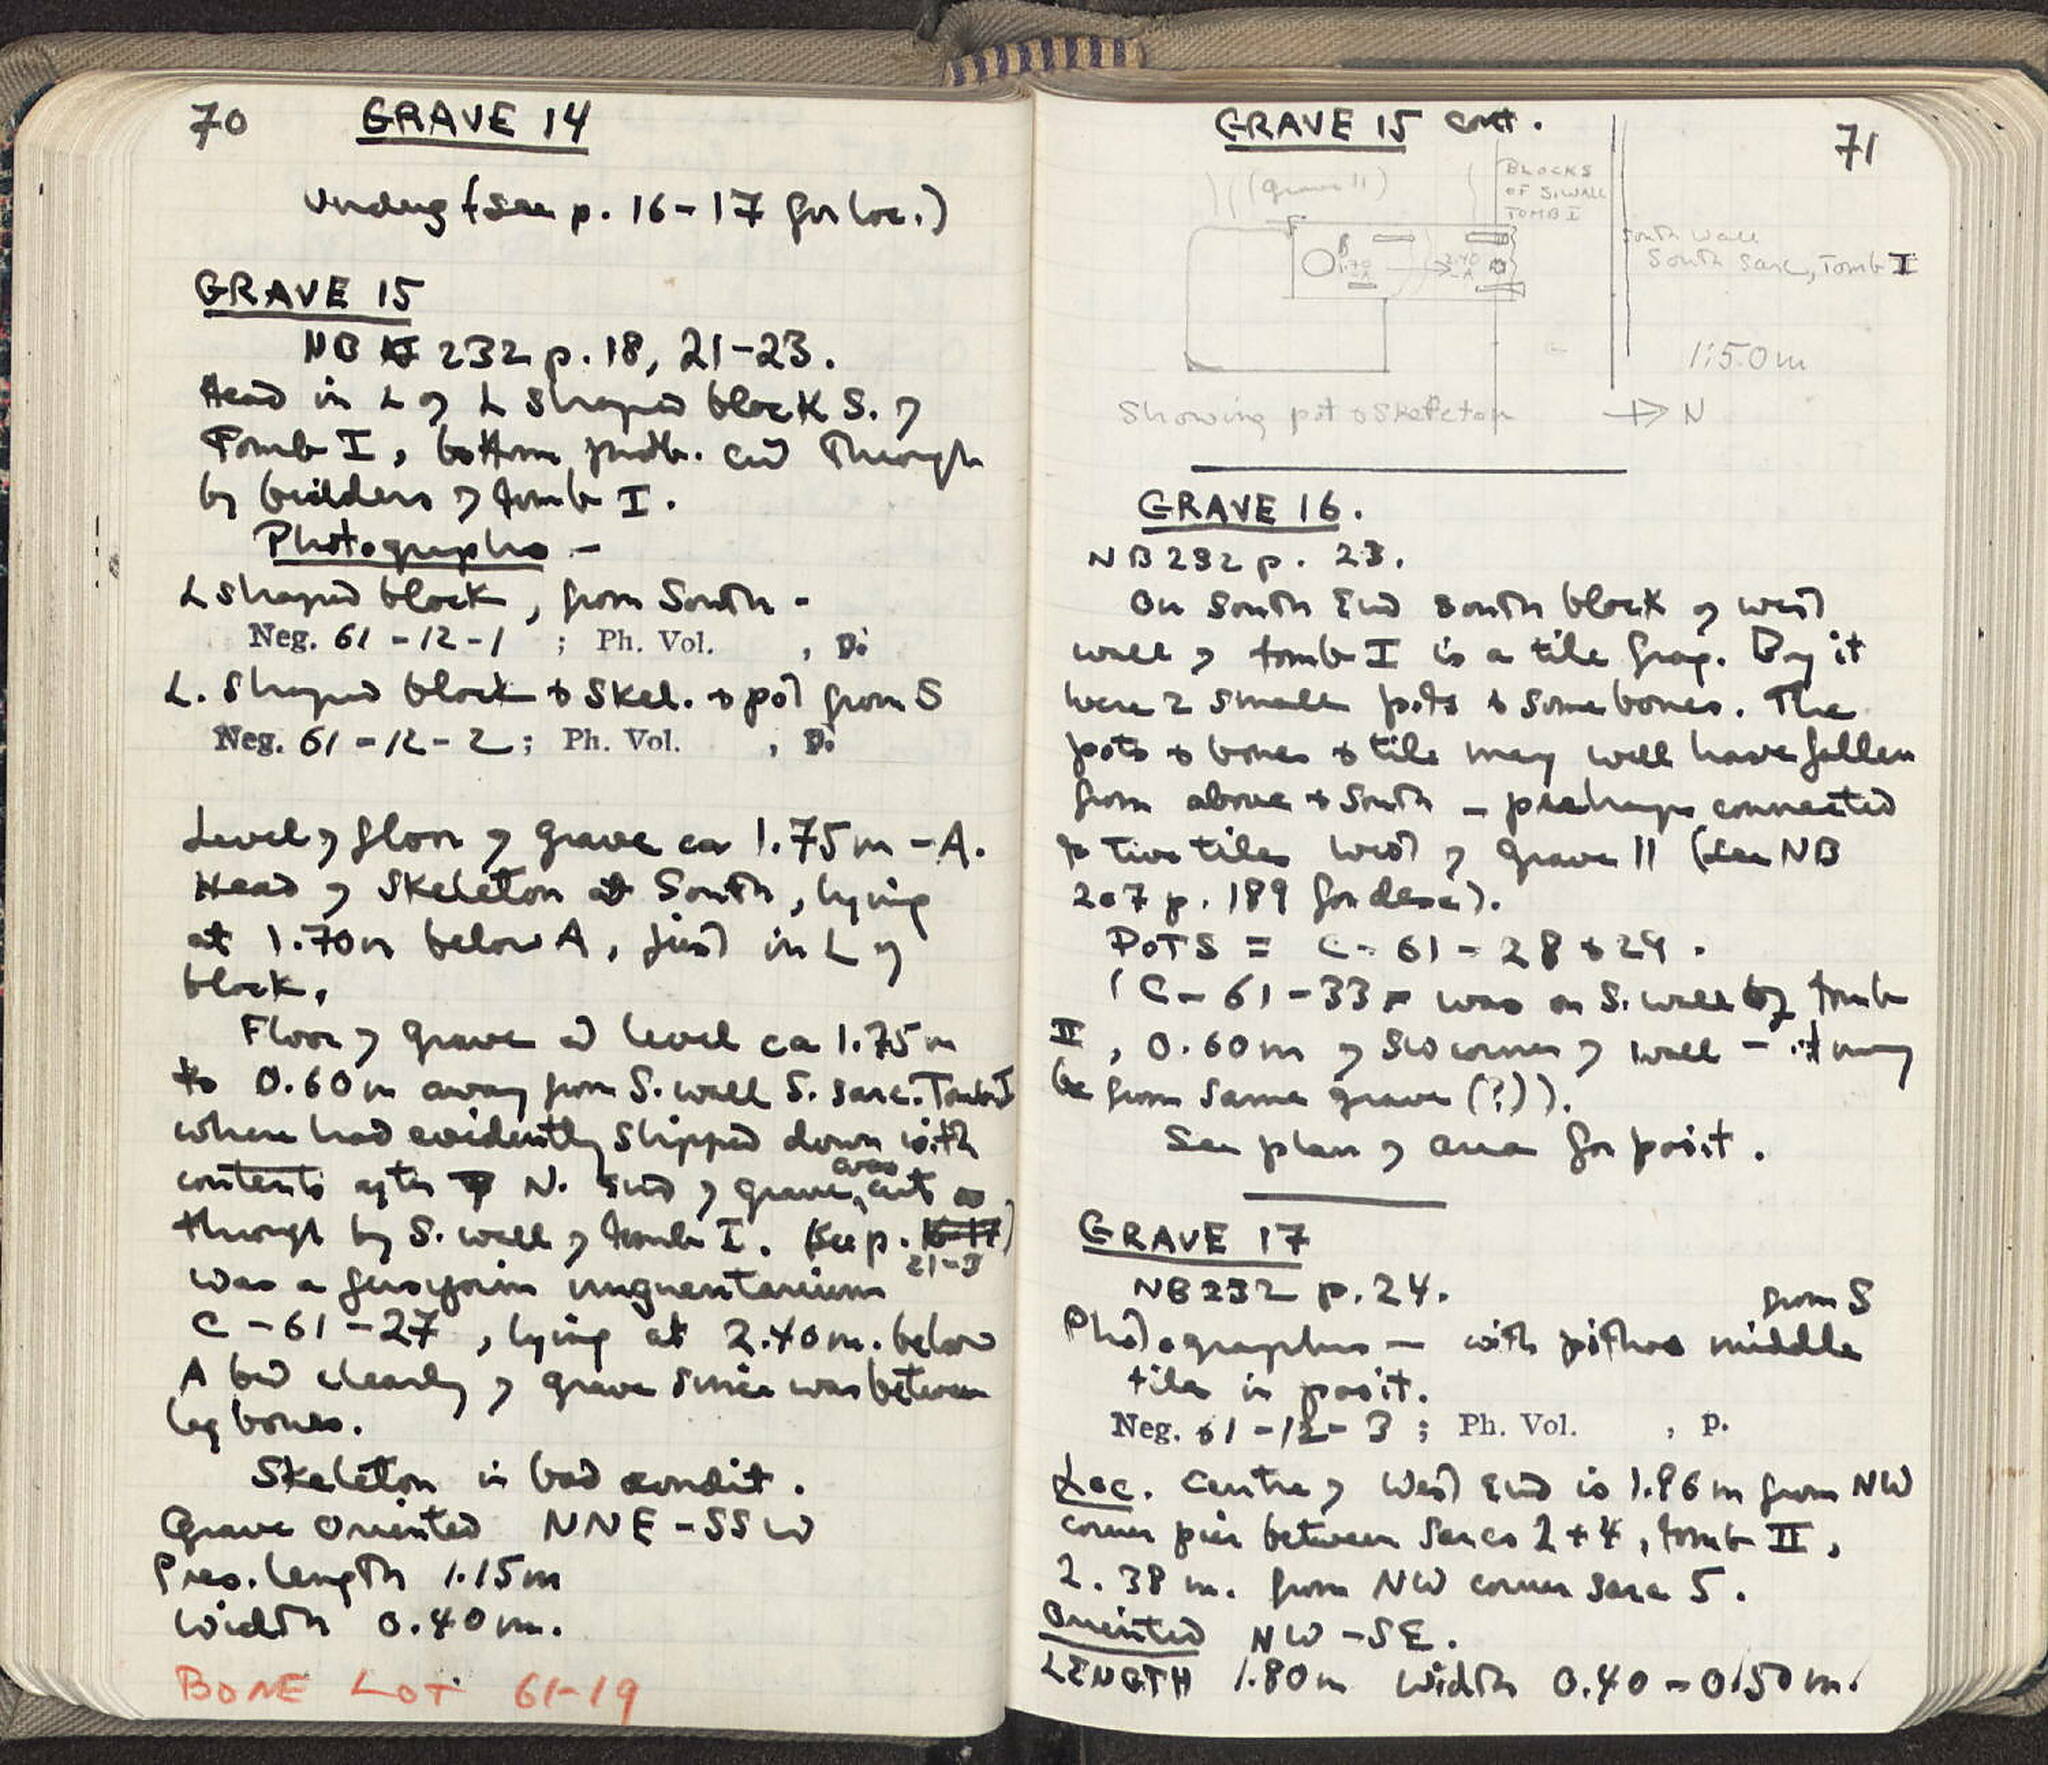 70
GRAVE 14
(see p. 16-17 for loc.)
GRAVE 15
NB 232 p. 18, 21-23.
Head in L of L shaped block S. of
Tomb I, bottom prob. cut through
by builders of tomb I.
Photographs -
L shaped block, from South -
Neg. 61-12-1 ; Ph. Vol. ,
L. shaped block + skel. + pot from S
Neg. 61-12-2; Ph. Vol. ,
Level of floor of grave ca 1.75m - A.
Head of skeleton at South, lying
at 1.70m below A, just in L of
block.
Floor of grave at level ca 1.75m
to 0.60m away from S. wall S. sarc. Tomb I
where had evidently slipped down with
contents after N. end of grave was cut
through by S. wall of tomb I. (See p. 16-17)
21-3
was a fusiform unguentarium
C-61-27, lying at 2.40m. below
A but clearly of grave since was between
leg bones.
Skeleton in bad condit.
Grave oriented NNE-SSW
Pres. length 1.15m
Width 0.40m.
BONE LOT 61-19
GRAVE 15 cont.
71
(grave 11)
BLOCKS
OF S. WALL
TOMB I
South wall
South Sarc, Tomb I
1.70
-A
2.40
-A
1:50m
Showing pot & skeleton
N
GRAVE 16.
NB 232 p. 23.
On south end south block of west
wall of tomb I is a tile frag. By it
were 2 small pots + some bones. The
pots + bones + tile may well have fallen
from above + South - perhaps connected
to two tiles west of grave 11 (see NB
207 p. 189 for desc).
POTS = C-61-28+29.
(C-61-33 was on S. wall of tomb
II, 0.60m of SW corner of wall - it may
be from same grave (?)).
See plan of area for posit.
GRAVE 17
NB 232 p. 24.
from S
Photographs - with pithos middle
tiles in posit.
Neg. 61-12-3 ; Ph. Vol. , p.
Loc. Centre of West end is 1.96m from NW
corner pier between sarcs 2+4, tomb II,
2.38m. from NW corner sarc 5.
Oriented NW-SE.
LENGTH 1.80m Width 0.40-0.50m.